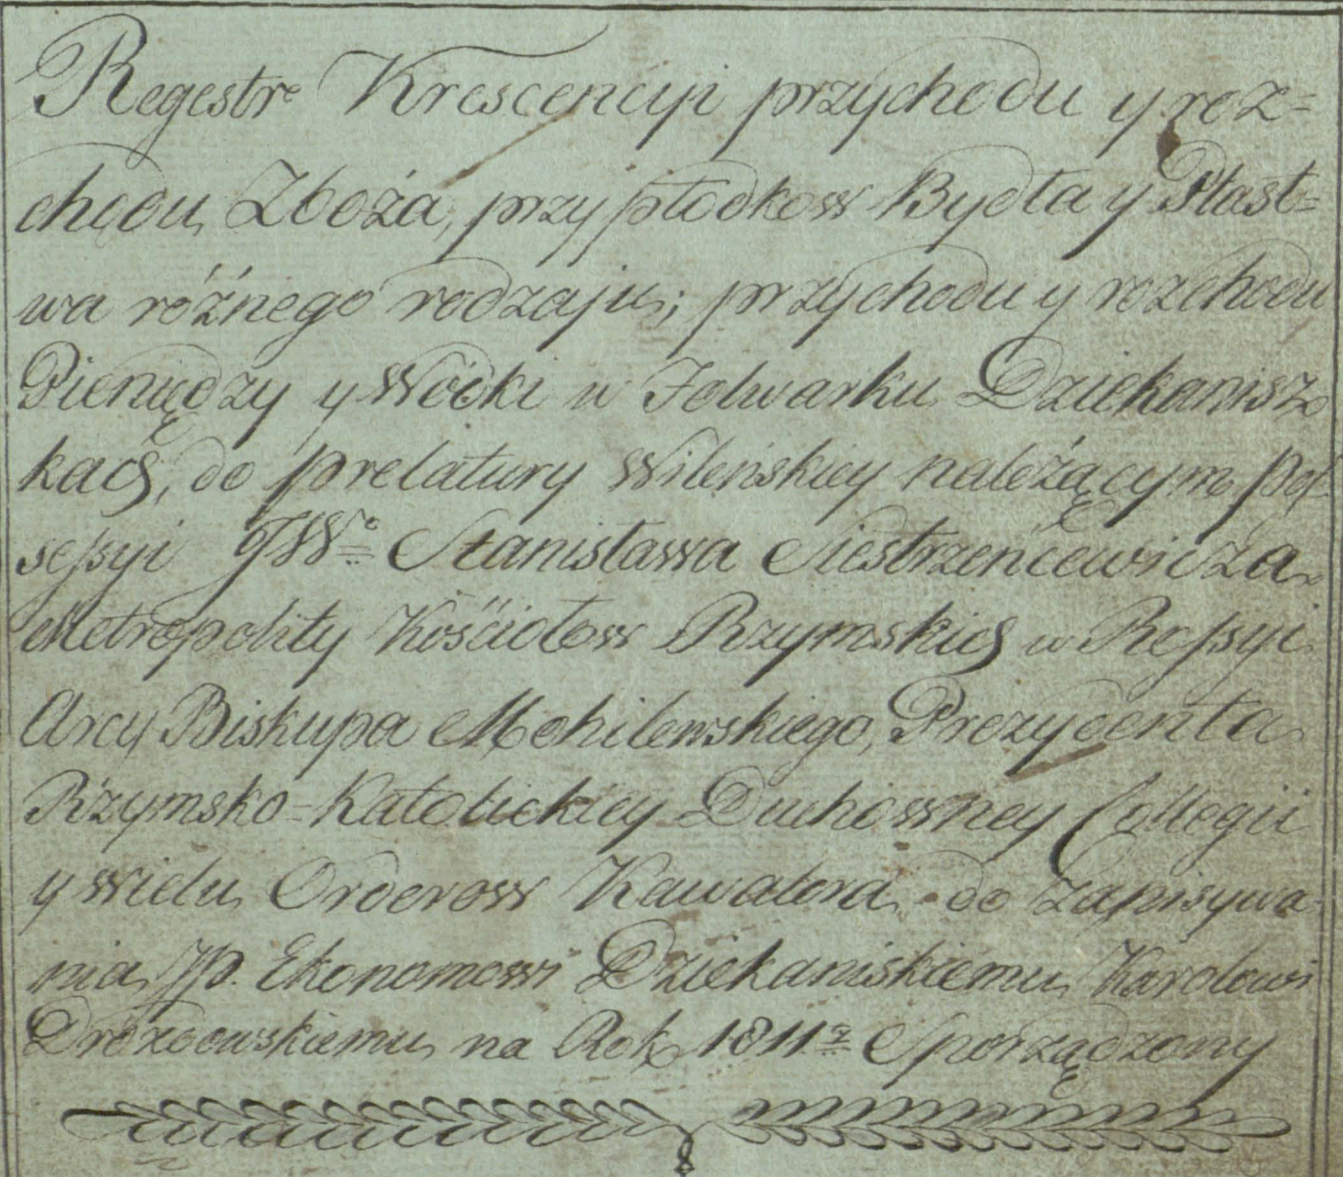 Regestr Krescencyi przychodu y roz=
chodu Zboża, przypłodkow Bydła y Ptast=
wa różnego rodzaju; przychodu y rozchodu
Pieniędzy y Wodki w Folwarku Dziekanisz
kach, do prelatury Wileńskiey należącym, pos
sessyi JWo Stanisława Siestrzeńcewicza
Metropolity Kościołow Rzymskich w Rossyi
Arcy Biskupa Mohilewskiego, Prezydenta
Rzymsko=Katolickiey Duchowney Collegii
y wielu Orderow Kawalera do zapisywa
nia Jp. Ekonomowi Dziekaniskiemu Karolowi
Drozdowskiemu na Rok 1811 Sporządzony